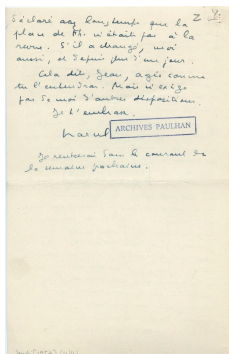 déclaré assez longtemps que la
place de Th. n'était pas à la
revue. S'il a changé, moi
aussi, et depuis plus d'un jour.
Cela dit, Jean, agis comme
tu l'entendras. Mais n'exige
pas de moi d'autres dispositions.
Je t'embrasse
Marcel
ARCHIVES PAULHAN
Je rentrerai dans le courant de
la semaine prochaine.